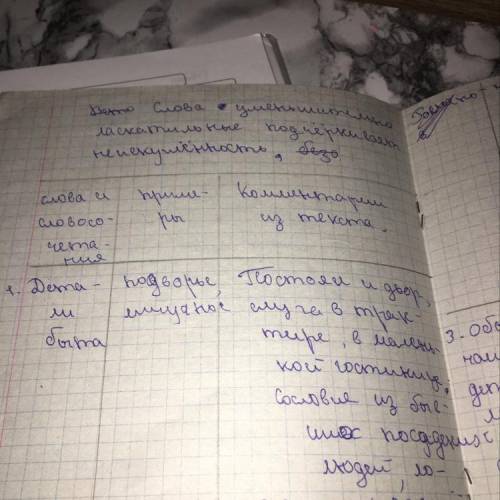 Слова уменьшительно
ласкательные подчёркивают
неискушённость,
слова и
словосо-
чета-
ния
приме-
ры
Комментарии
из текста.
1. Дета-
ли
быта
подворье,
Постоял и двор,
слуга в трак-
тире, в малень-
кой гостинице,
Сословие из быв-
ших посадских
людей, ло-
3.